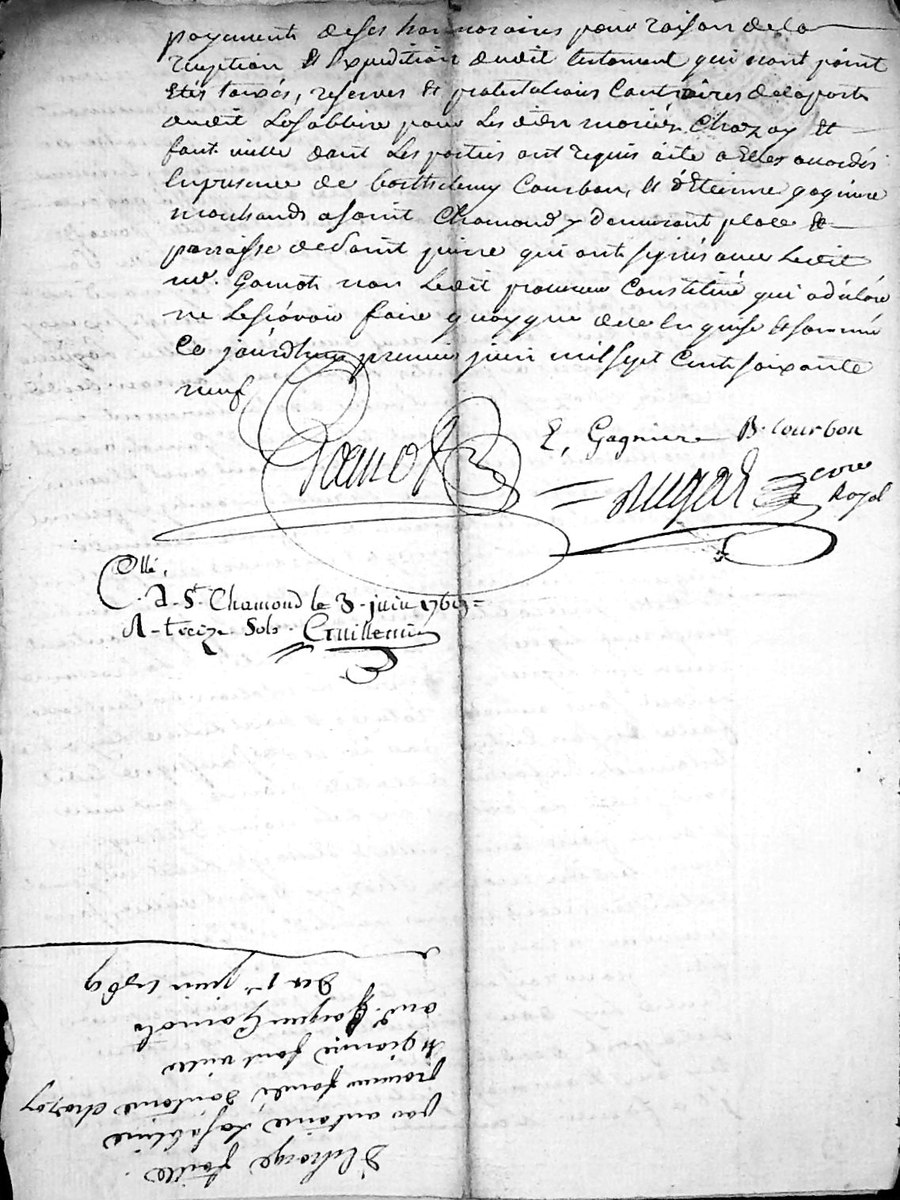 payements de ses honnoraires pour raison de la
reception et expedition dudit testament qui n'ont point
étés taxés, reserves et protestations contraires de la part
dudit Lafabline pour les dits mariés Chazay et
font ville dont les parties ont requis acte a elles accordés
en presence de barthelemy Courbon, et d'Etienne gagniere
marchands a saint Chamond y demeurant place et
parroisse de saint pierre qui ont signés avec ledit
mr. Gamot non ledit procureur constitué qui a déclaré
ne le sçavoir faire quoyque de ce enquis et sommé
ce jourdhuy premier juin mil sept cent soixante
neuf
Gamot E, Gagniere B. Courbon
Royal
Collé,
A St. Chamond le 3 juin 1769
A treize sols Guillemin
Decharge faitte
par antoine Lafabline
procureur fondé, d'antoine chazay
et font ville
aud. Gamot
du 1er juin 1769